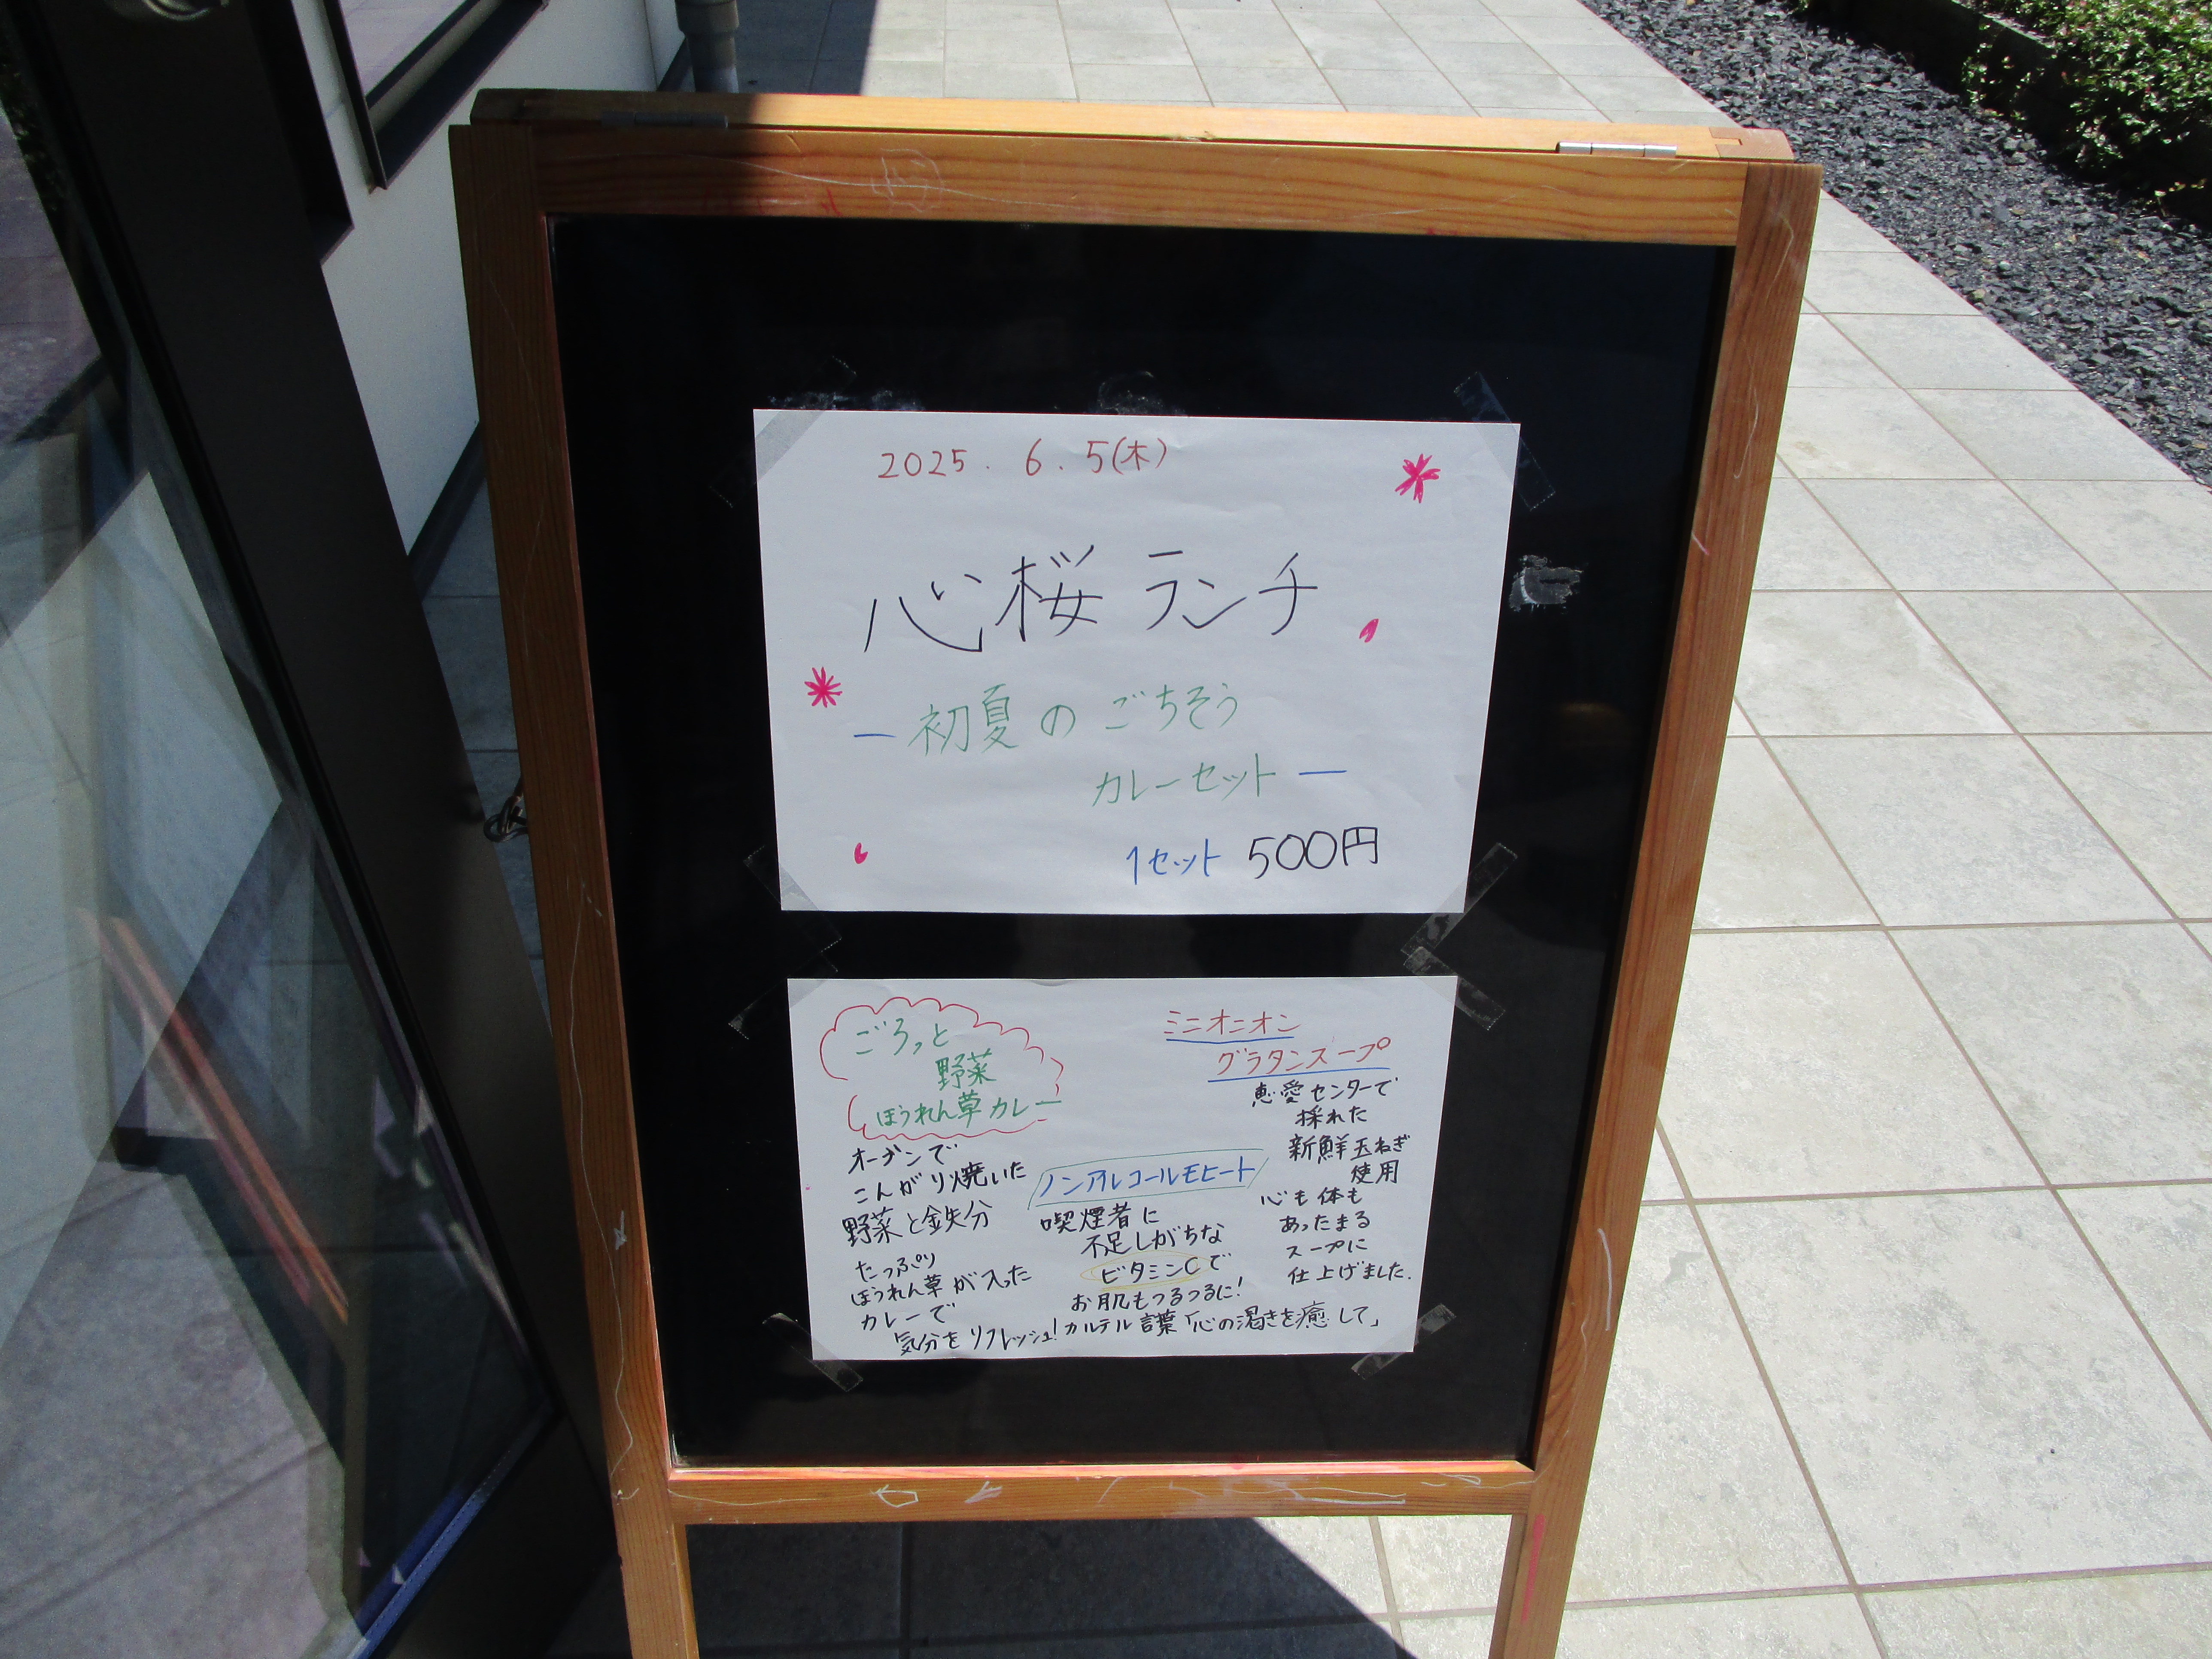 2025. 6. 5(木)
心桜ランチ
ー初夏のごちそう
カレーセットー
1セット 500円
ごろっと
野菜
ほうれん草カレー
オーブンで
こんがり焼いた
野菜と鉄分
たっぷり
ほうれん草が入った
カレーで
気分をリフレッシュ!
ノンアルコールモヒート
喫煙者に
不足しがちな
ビタミンCで
お肌もつるつるに!
カルテル言葉「心の渇きを癒して」
ミニオニオン
グラタンスープ
恵愛センターで
採れた
新鮮玉ねぎ
使用
心も体も
あったまる
スープに
仕上げました.